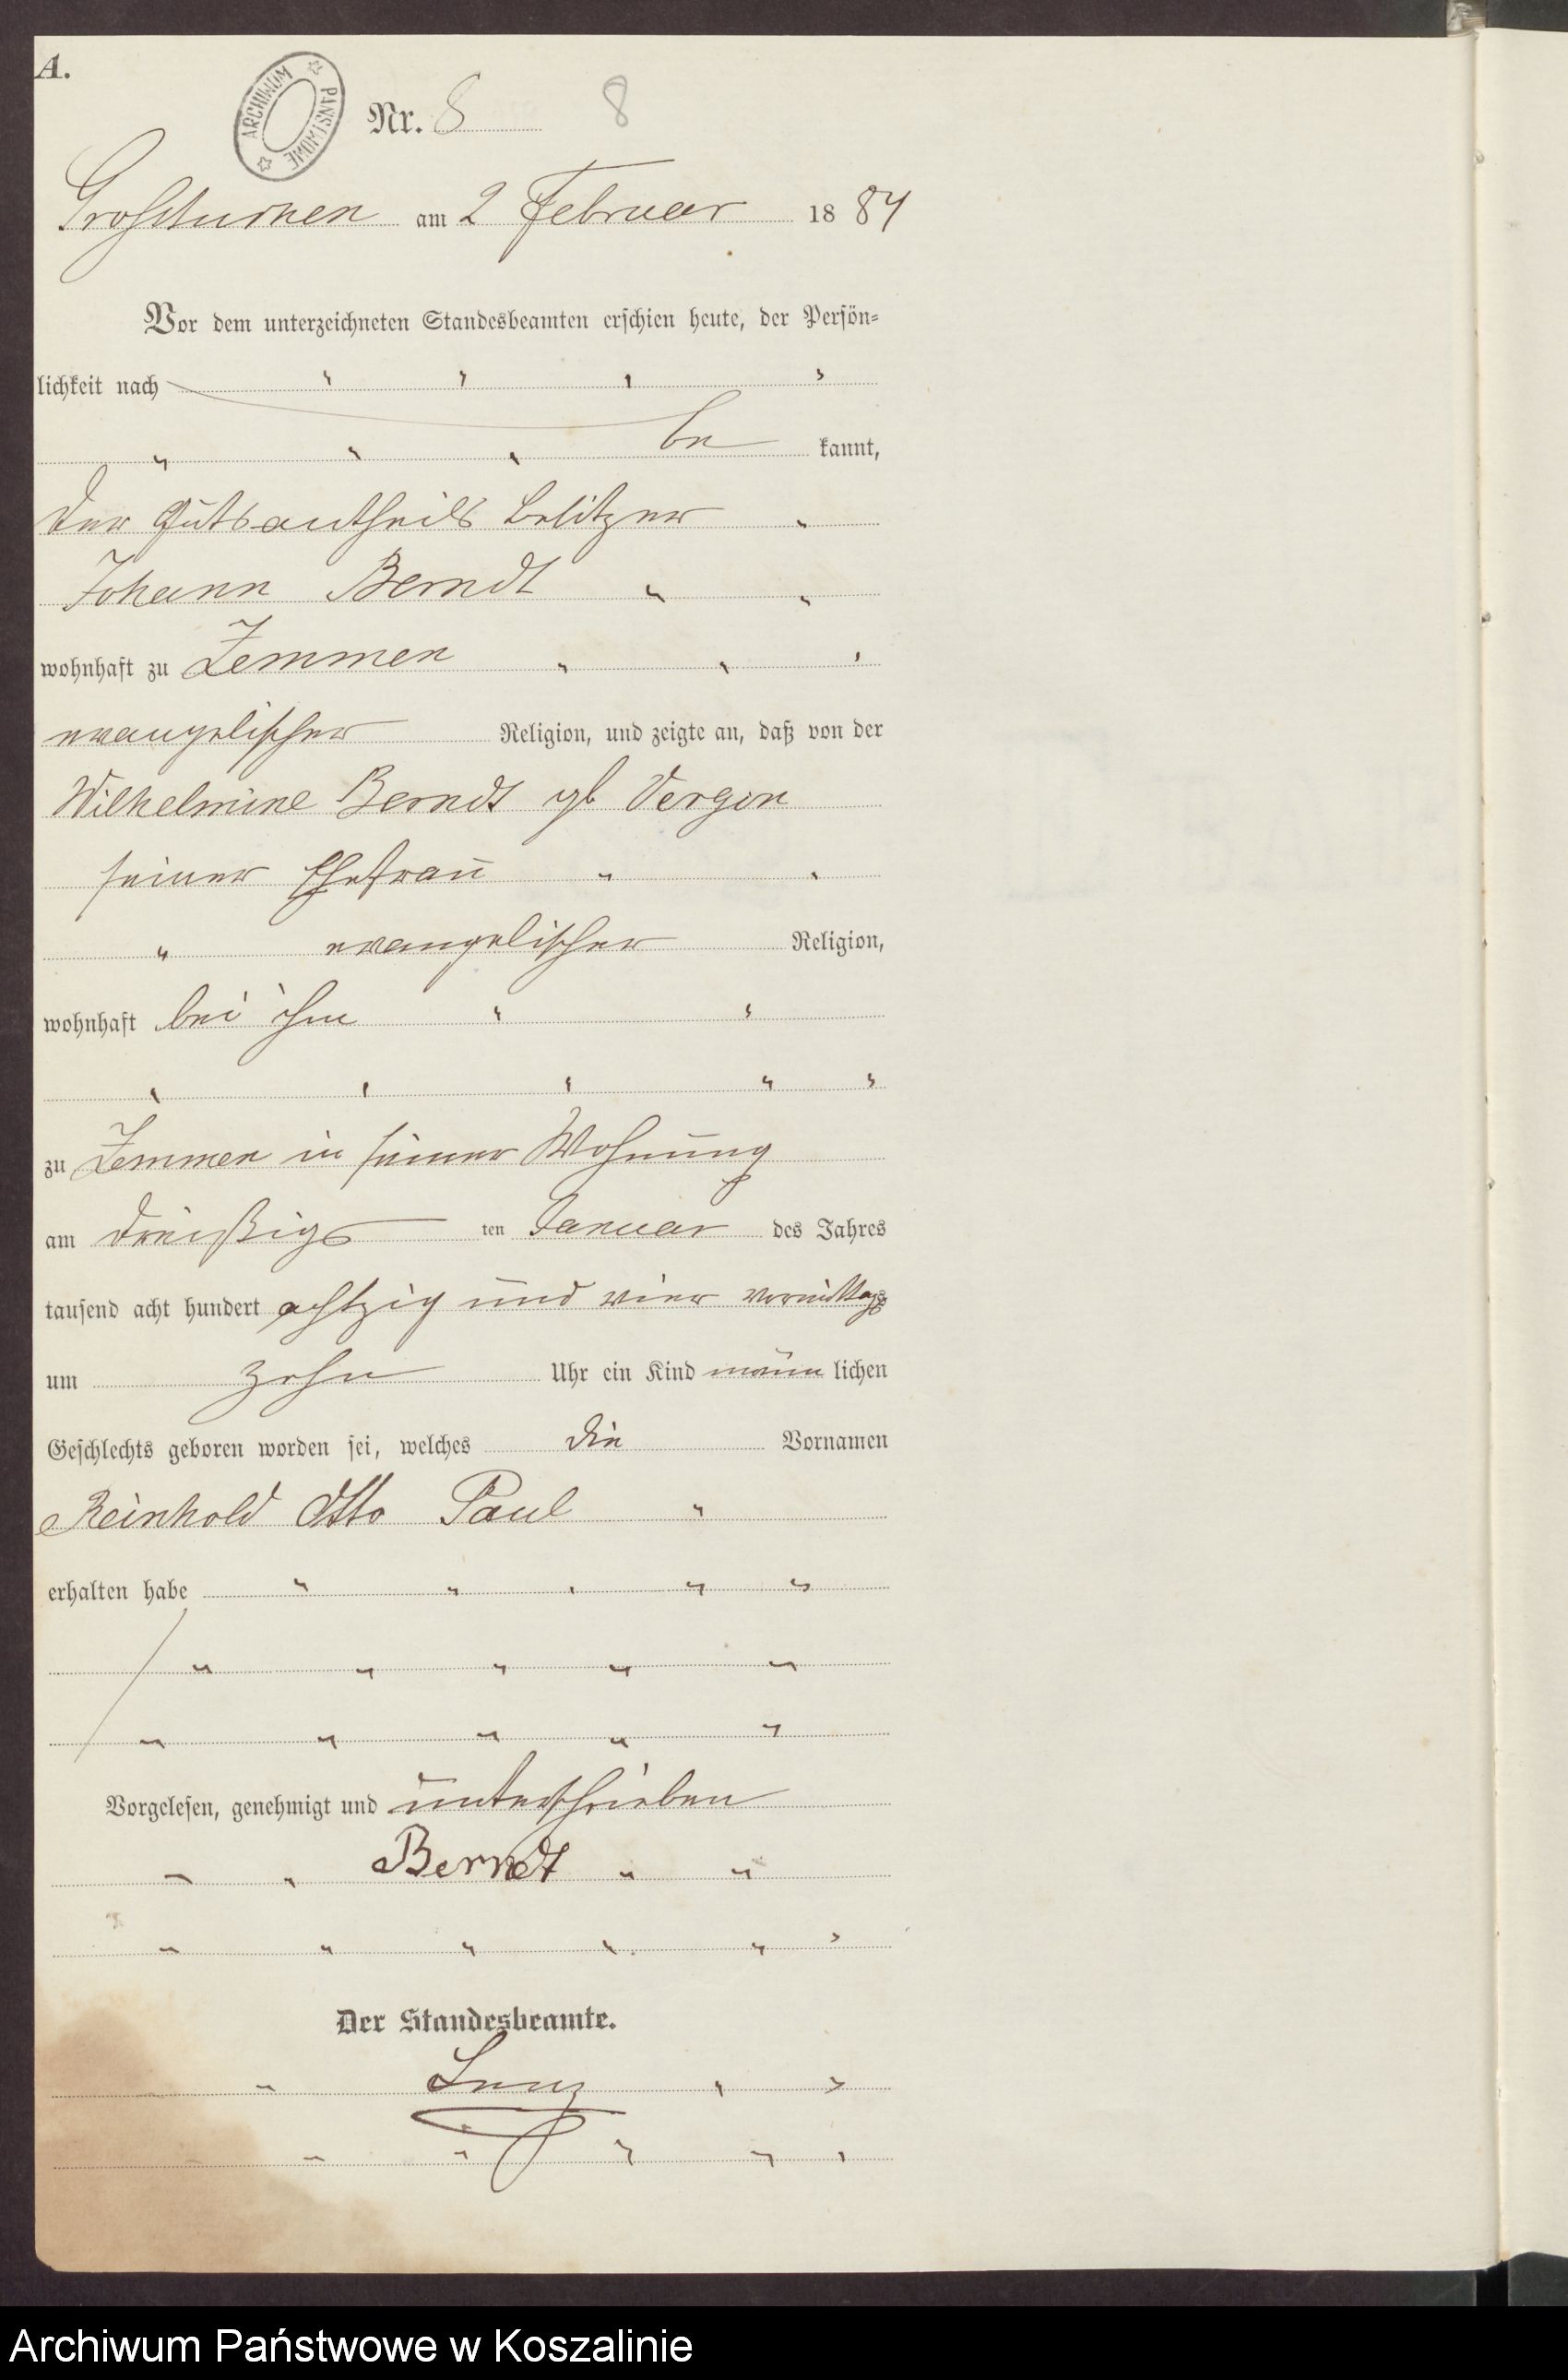 A.
ARCHIWUM PAŃSTWOWE
Nr. 8 8
Großtuchen am 2 Februar 1884
Vor dem unterzeichneten Standesbeamten erschien heute, der Persön=
lichkeit nach
be kannt,
der Gutsantheils besitzer
Johann Berndt
wohnhaft zu Zemmen
evangelischer Religion, und zeigte an, daß von der
Wilhelmine Berndt gb Vergin
seiner Ehefrau
evangelischer Religion,
wohnhaft bei ihm
zu Zemmen in seiner Wohnung
am dreißigs ten Januar des Jahres
tausend acht hundert achtzig und vier vormittags
um zehn Uhr ein Kind männ lichen
Geschlechts geboren worden sei, welches die Vornamen
Reinhold Otto Paul
erhalten habe
Vorgelesen, genehmigt und unterschrieben
Berndt
Der Standesbeamte.
Lenz
Archiwum Państwowe w Koszalinie